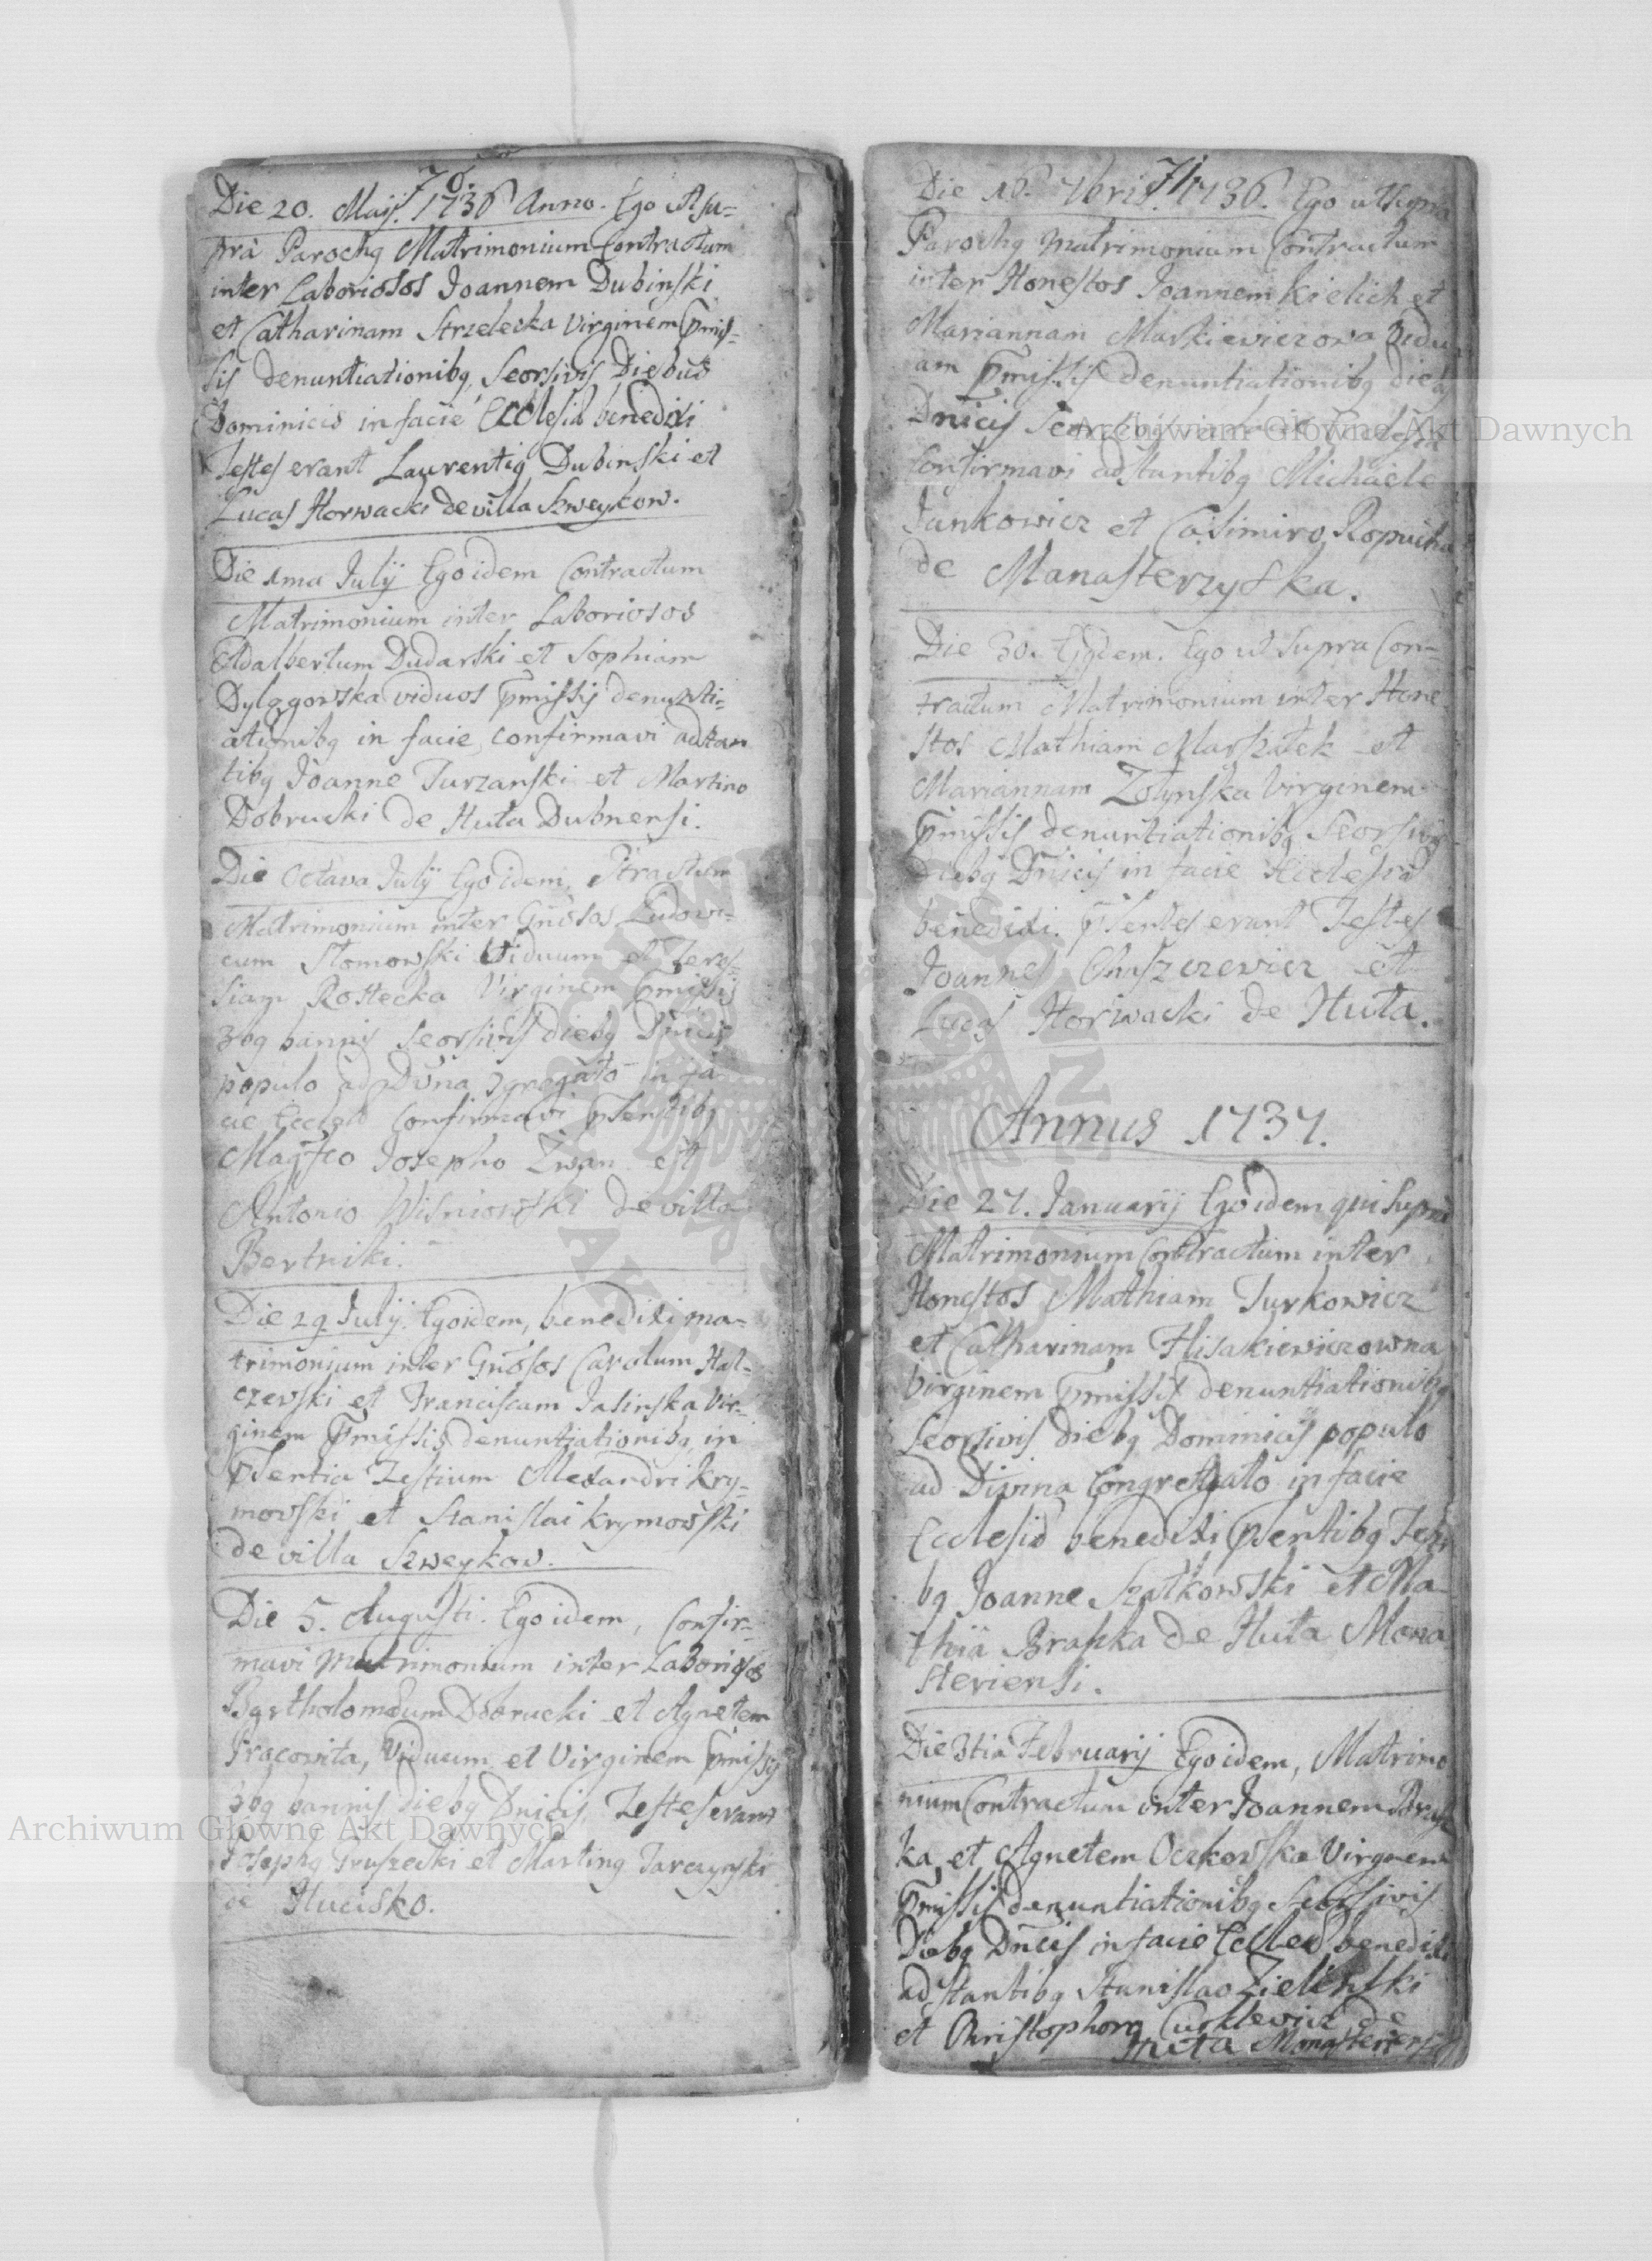 70.
Die 20. Maij. 1736 Anno. Ego ut su=
pra Parochq Matrimonium Contractum
inter Laboriosos Joannem Dubinski
et Catharinam Strzelecka Virginem pmis=
sis denuntiationibq, Seorsivis Diebus
Dominicis in facie Ecclesiæ benedixi
Testes erant Laurentiq Dubinski et
Lucas Horwacki de villa Szweykow.
Die 1ma Julij Ego idem Contractum
Matrimonium inter Laboriosos
Adalbertum Dudarski et Sophiam
viduos pmissis denunti=
ationibq in facie, confirmavi adstan
tibq Joanne Turzanski et Martino
Dobrucki de Huta Dubnensi.
Die Octava Julij Ego idem,
Matrimonium inter Gnosos Ludovi=
cum Slomowski Viduum et Tere=
siam Rostecka Virginem pmissis
3bq bannis seorsivis diebq Dnicis
populo ad Divina in fa
cie Eccles confirmavi psentibq
Josepho et
Antonio Wisniowski de villa
Bertniki.
Die 29 Julij. Ego idem, benedixi ma=
trimonium inter Gnosos Carolum Hal=
czewski et Franciscam Jasinska Vir=
ginem pmissis denuntiationibq, in
psentia Testium Alexandri Kry=
mowski et Stanislai Krymowski
de villa Szweykow.
Die 5. Augusti. Ego idem, Confir=
mavi Matrimonium inter Laboriosos
Bartholomæum Dobrucki et Agnetem
Pracowita, Viduum et Virginem pmissis
3bq bannis diebq Dnicis, Testes erant
Josephq Truszecki et Martinq Tarczynski
de Hucisko.
71.
Die 16. 7bris. 1736. Ego ut supra
Parochq Matrimonium Contractum
inter Honestos Joannem Kielich et
Mariannam Markiewiczowa Vidu
am pmissis denuntiationibq diebq
Dnicis
Confirmavi adstantibq Michaele
Jankowicz et Casimiro Ropucha
de Manasterzyska.
Die 30. Ejqdem. Ego ut supra Con=
tractum Matrimonium inter Hone
stos Mathiam Marszalek et
Mariannam Zolynska Virginem
pmissis denuntiationibq Seorsivis
diebq Dnicis in facie Ecclesiæ
benedixi. psentes erant Testes
Joannes Chaszczewicz et
Lucas Horwacki de Huta.
Annus 1737.
Die 27. Januarij Ego idem qui supra
Matrimonium Contractum inter
Honestos Mathiam Jurkowicz
et Catharinam Hlisakiewiczowna
Virginem pmissis denuntiationibq
Seorsivis diebq Dominicis populo
ad Divina Congregato in facie
Ecclesiæ benedixi psentibq Testi
bq Joanne Szalkowski et Ma
thia de Huta Mona
steriensi.
Die 3tia Februarij Ego idem, Matrimo
nium Contractum inter Joannem
ka, et Agnetem Oczkowska Virginem
pmissis denuntiationibq Seorsivis
Diebq Dnicis in facie Eccles benedixi
adstantibq Stanislao Zielinski
et Christophoro de
Huta Monasteriensi
Archiwum Główne Akt Dawnych
Archiwum Główne Akt Dawnych